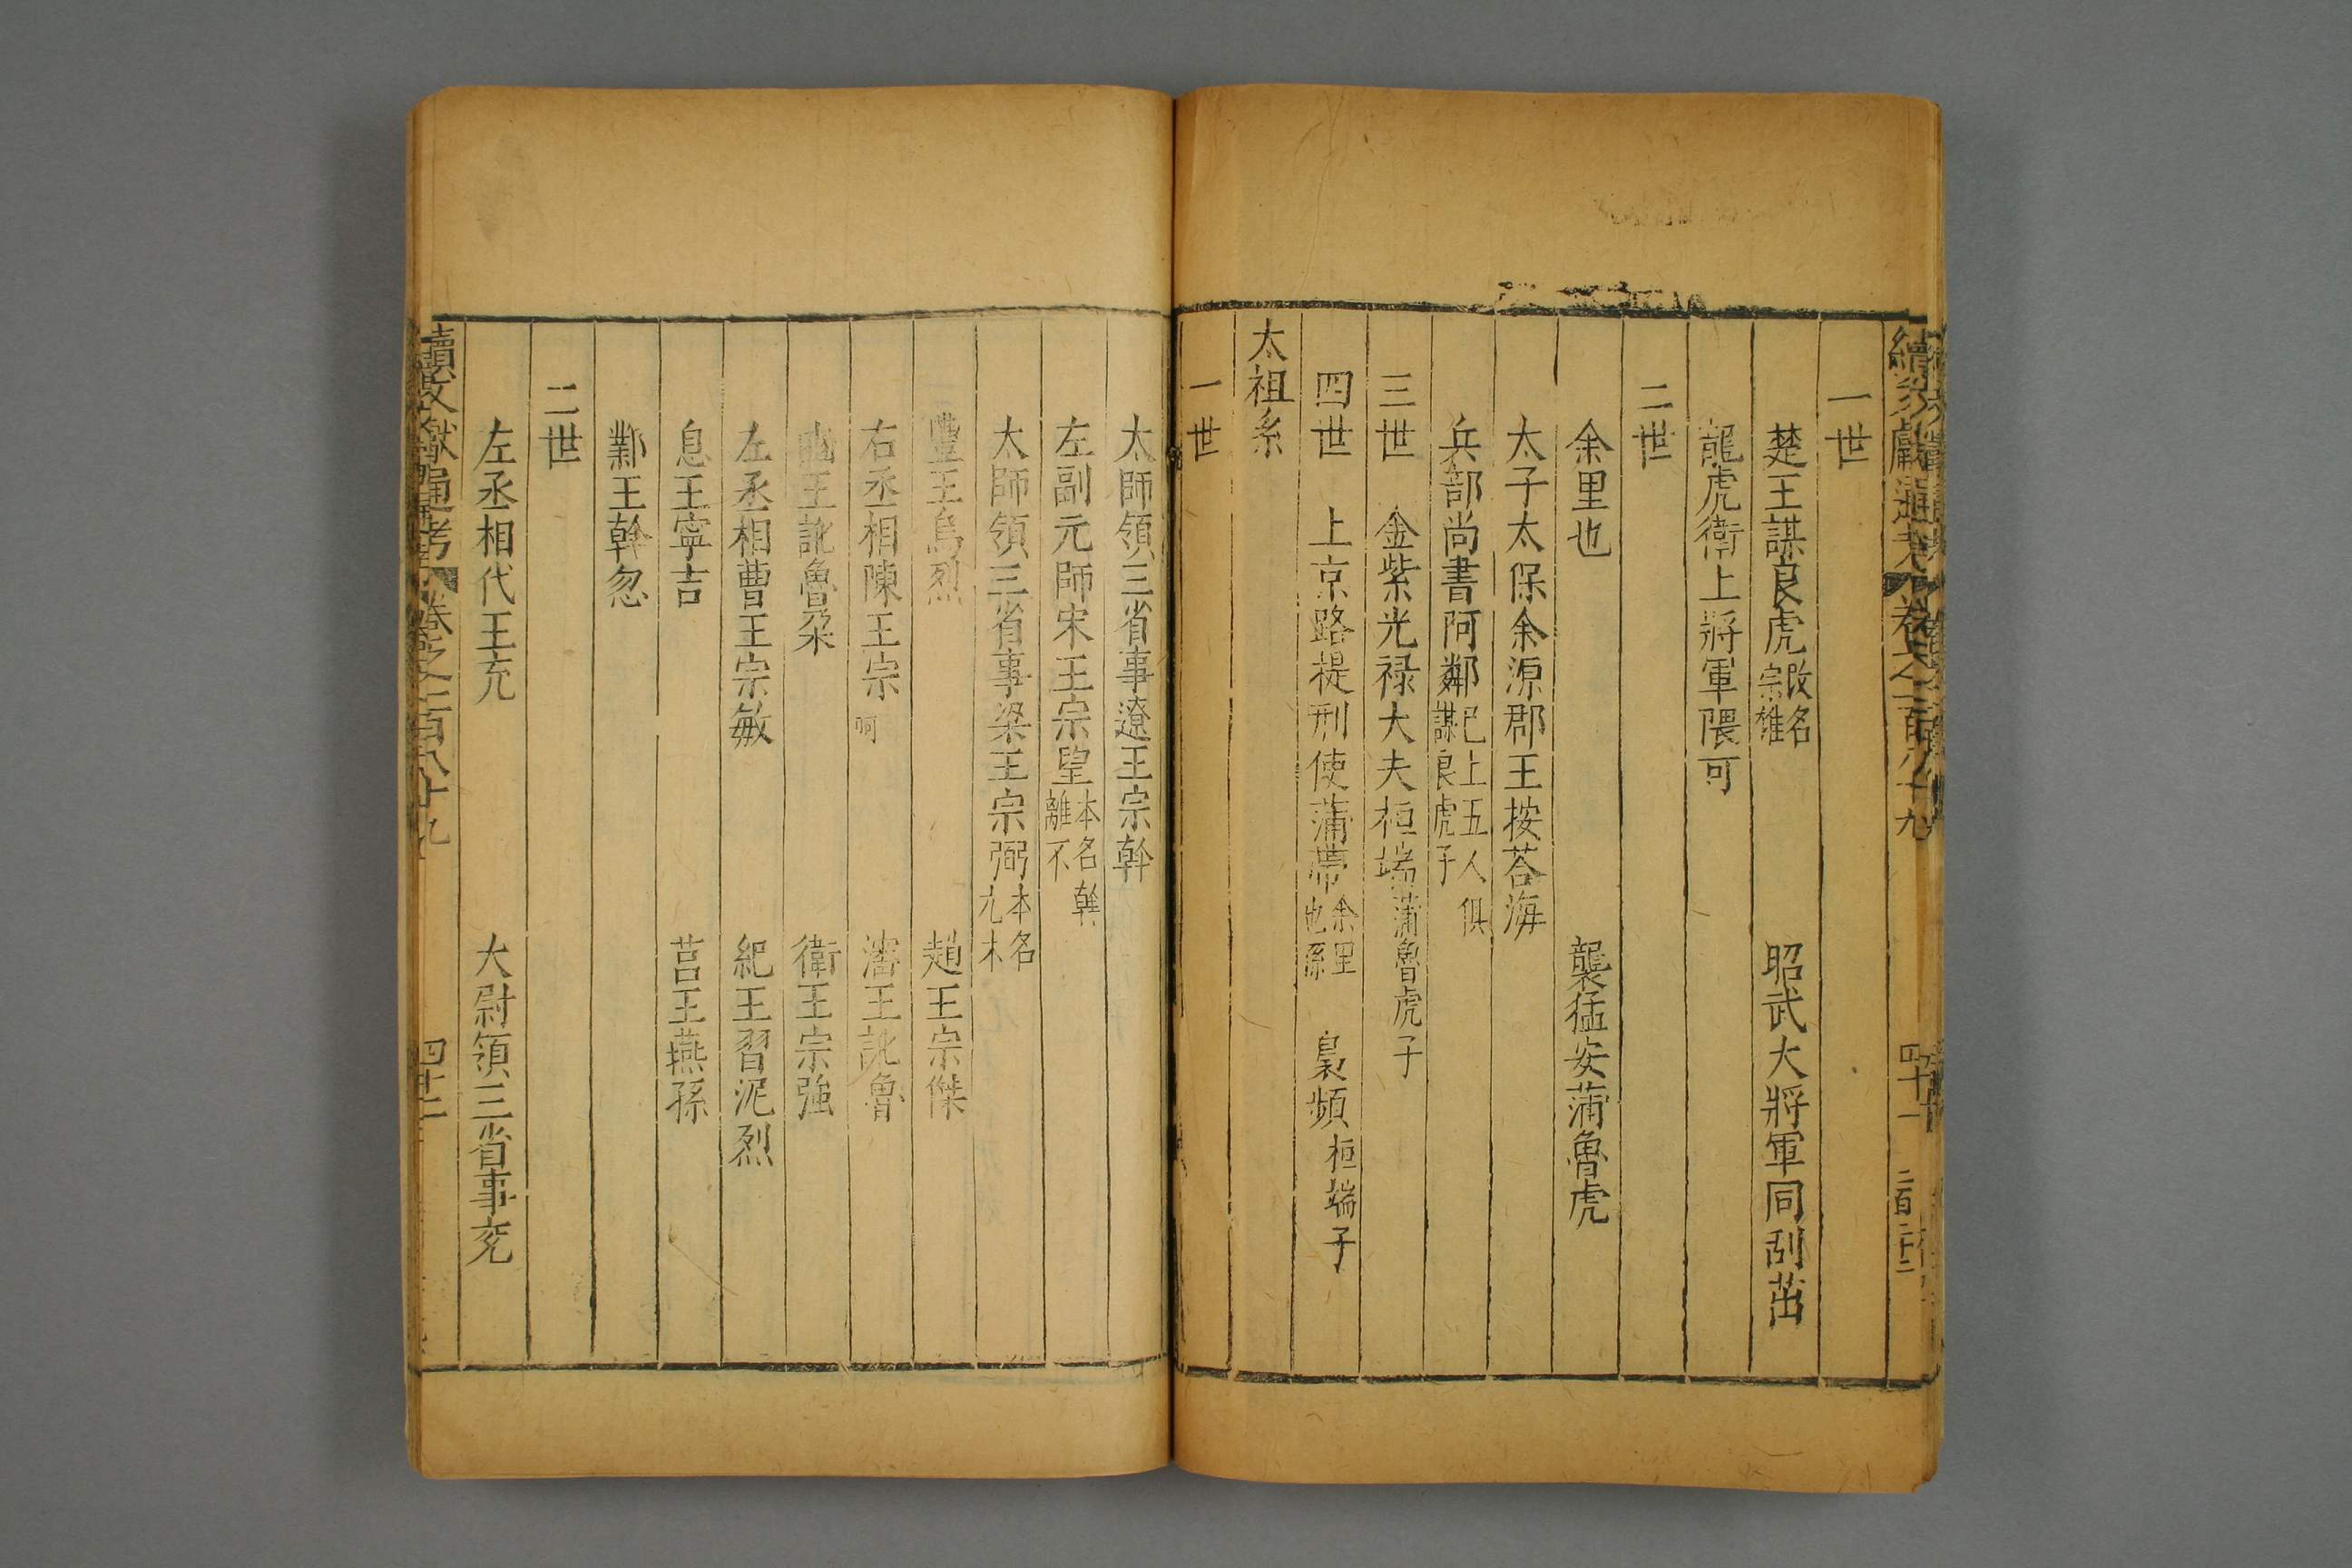 續文獻通考 卷之二百八十九 四十一 二百二十二
一世
楚王謀良虎 改名宗雄 昭武大將軍同刮茁
龍虎衛上將軍隈可
二世
余里也 襲猛安蒲魯虎
太子太保余源郡王按荅海
兵部尚書阿鄰 已上五人俱謀良虎子
三世 金紫光禄大夫桓端 蒲魯虎子
四世 上京路提刑使蒲帶 余里也系 裊頻 桓端子
太祖系
一世
太師領三省事遼王宗幹
左副元師宋王宗望 本名斡離不
太師領三省事梁王宗弼 本名兀木
豐王烏烈 趙王宗傑
右丞相陳王宗 瀋王訛魯
豳王訛魯朶 衛王宗強
左丞相曹王宗敏 紀王習泥烈
息王寧吉 莒王燕孫
鄴王斡忽
二世
左丞相代王充 大尉領三省事兖
續文獻通考 卷之二百八十九 四十二